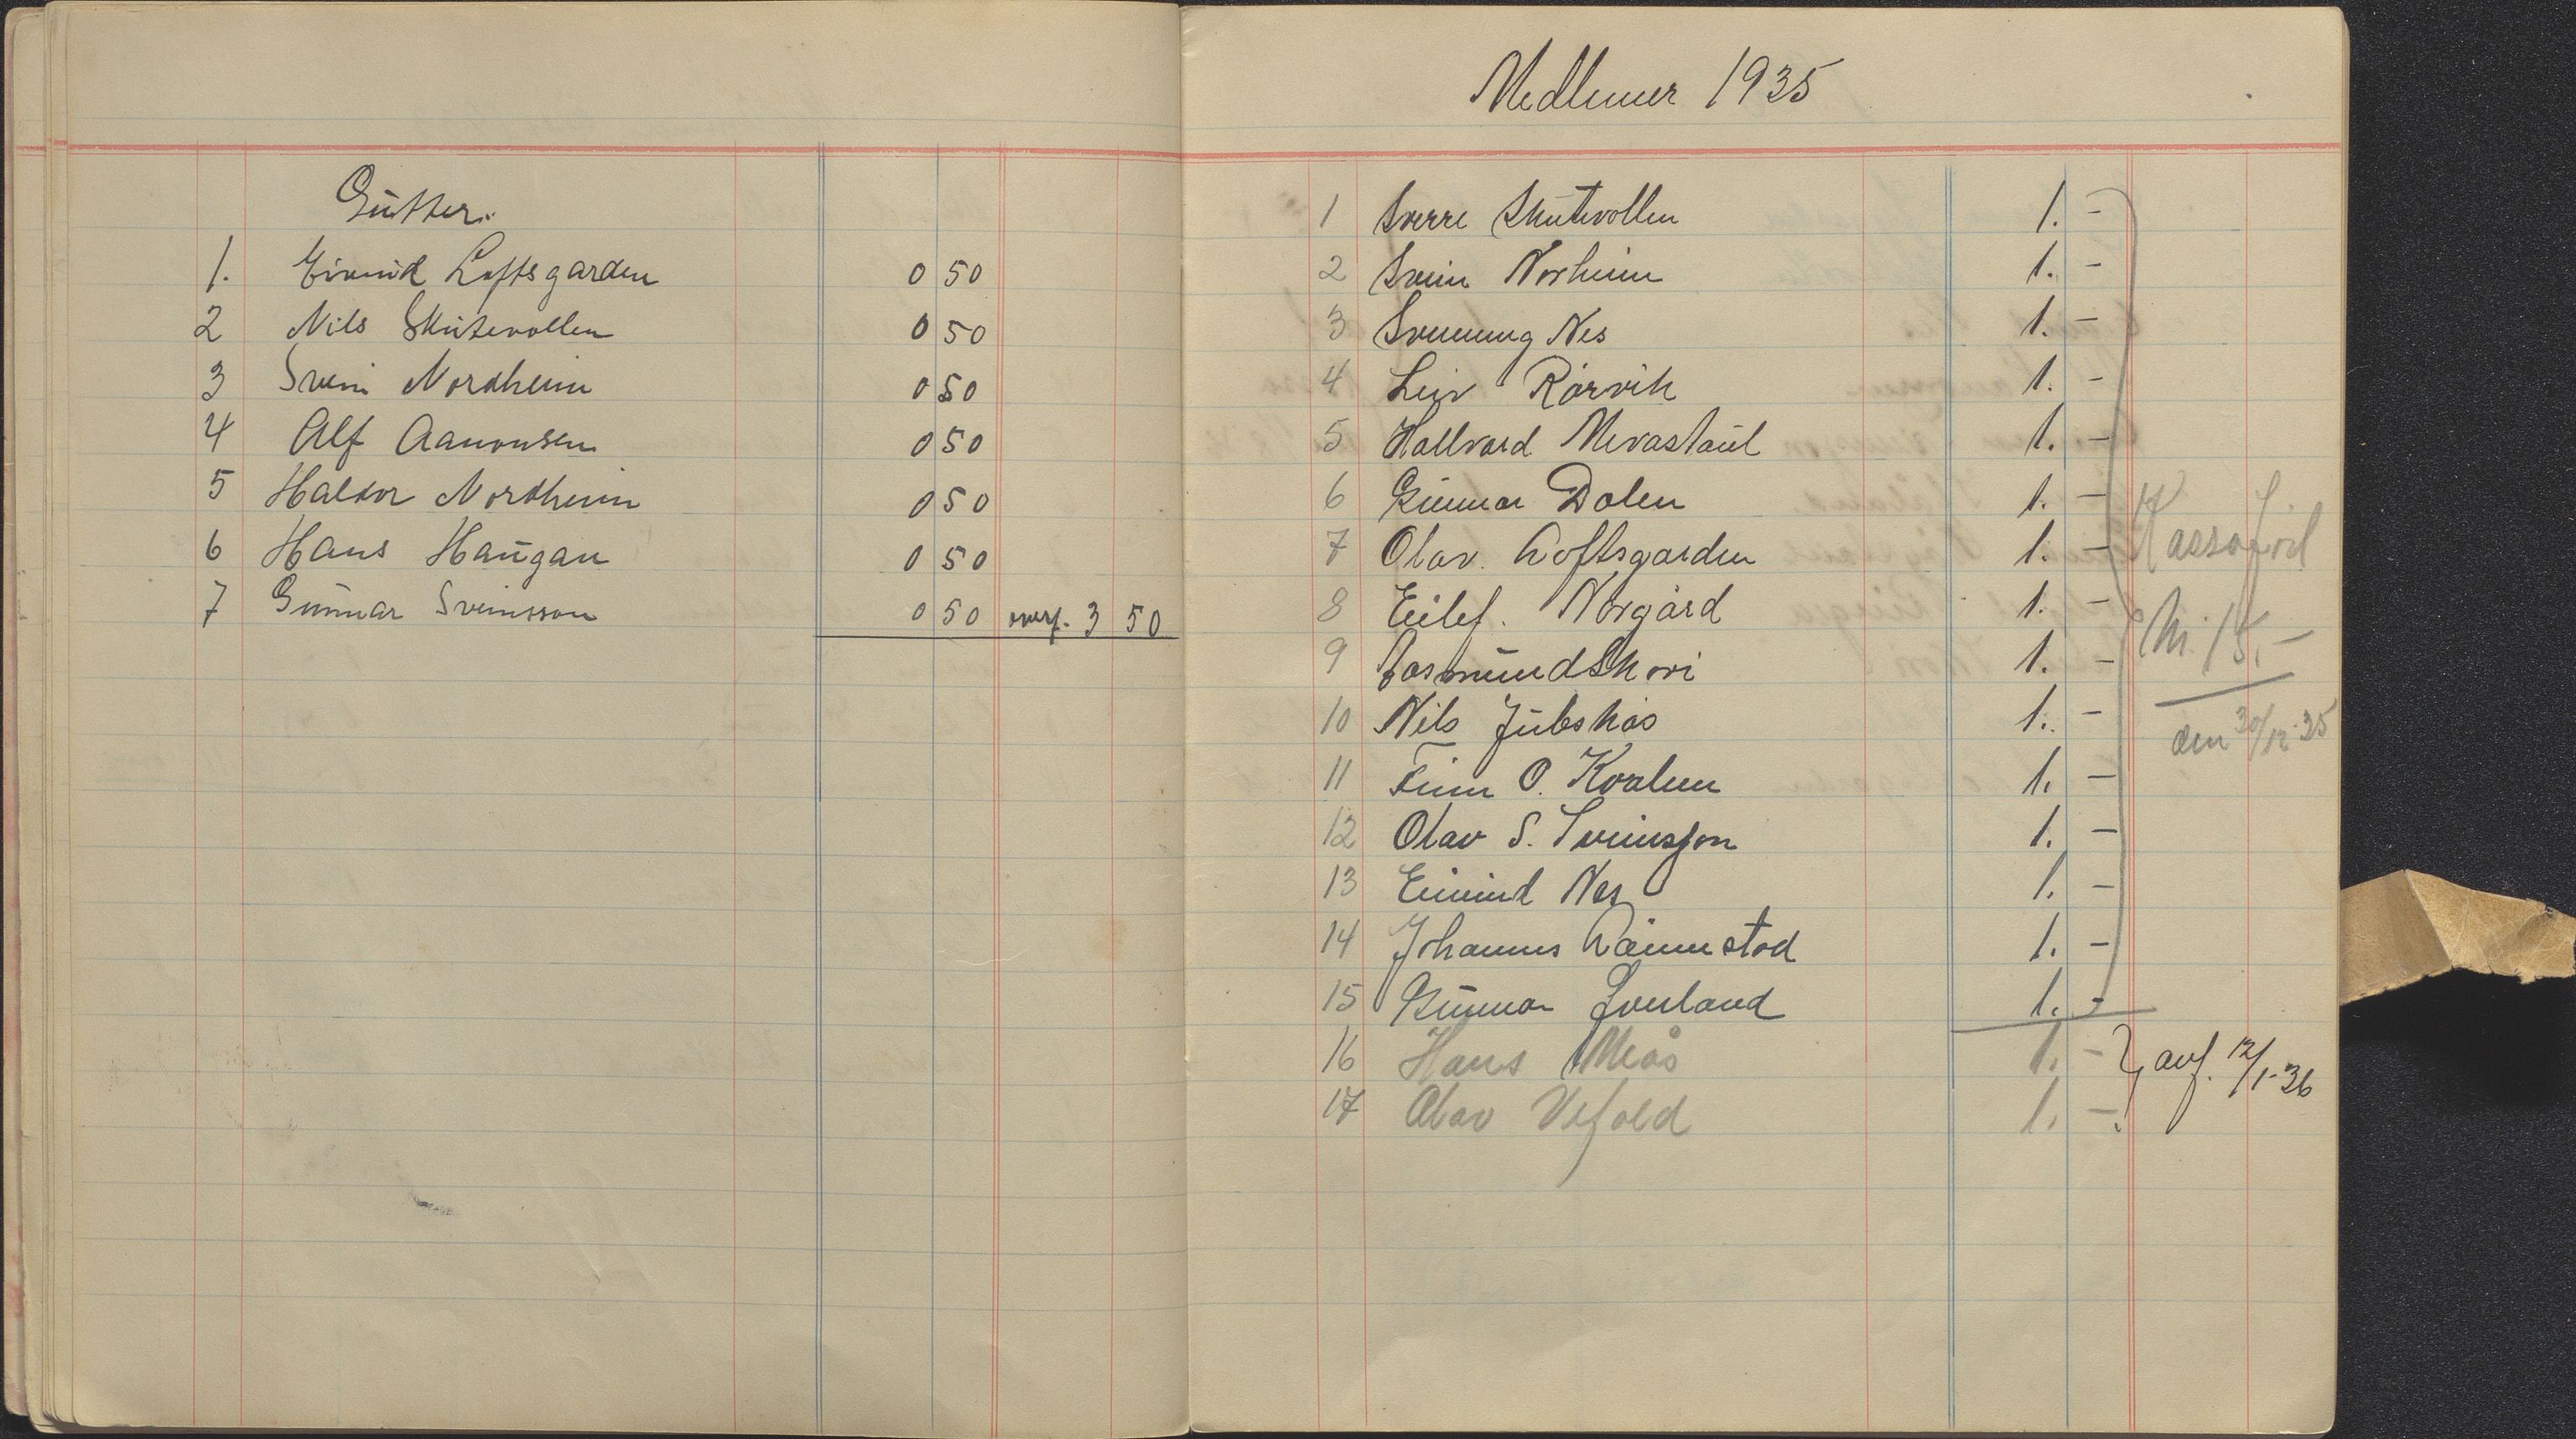 Gutter.
1. Eivind Loftsgarden 0 50
2 Nils Skutevollen 0 50
3 Svein Nordheim 0 50
4 Alf Aanonsen 0 50
5 Haldor Nordheim 0 50
6 Hans Haugan 0 50
7 Gunnar Sveinsson 0 50 overf. 3 50
Medlemer 1935
1 Sverre Skutevollen 1. -
2 Svein Norheim 1. -
3 Svenung Nes 1. -
4 Leiv Rørvik 1. -
5 Hallvard Mevastaul 1. -
6 Gunnar Dolen 1. -
7 Olav. Loftsgarden 1. -
8 Eilef. Norgård 1. -
9 Aasmund Skori 1. -
10 Nils Jubskås 1. -
11 Finn O. Kvalen 1. -
12 Olav S. Sveinsson 1. -
13 Eivind Nes 1. -
14 Johannes Lønnestad 1. -
15 Gunnar Sverland 1. -
Kassafød
kr. 15,-
den 30/12-35
16 Hans Meås 1. -
17 Olav Vefald 1. -
avf. 12/1-36